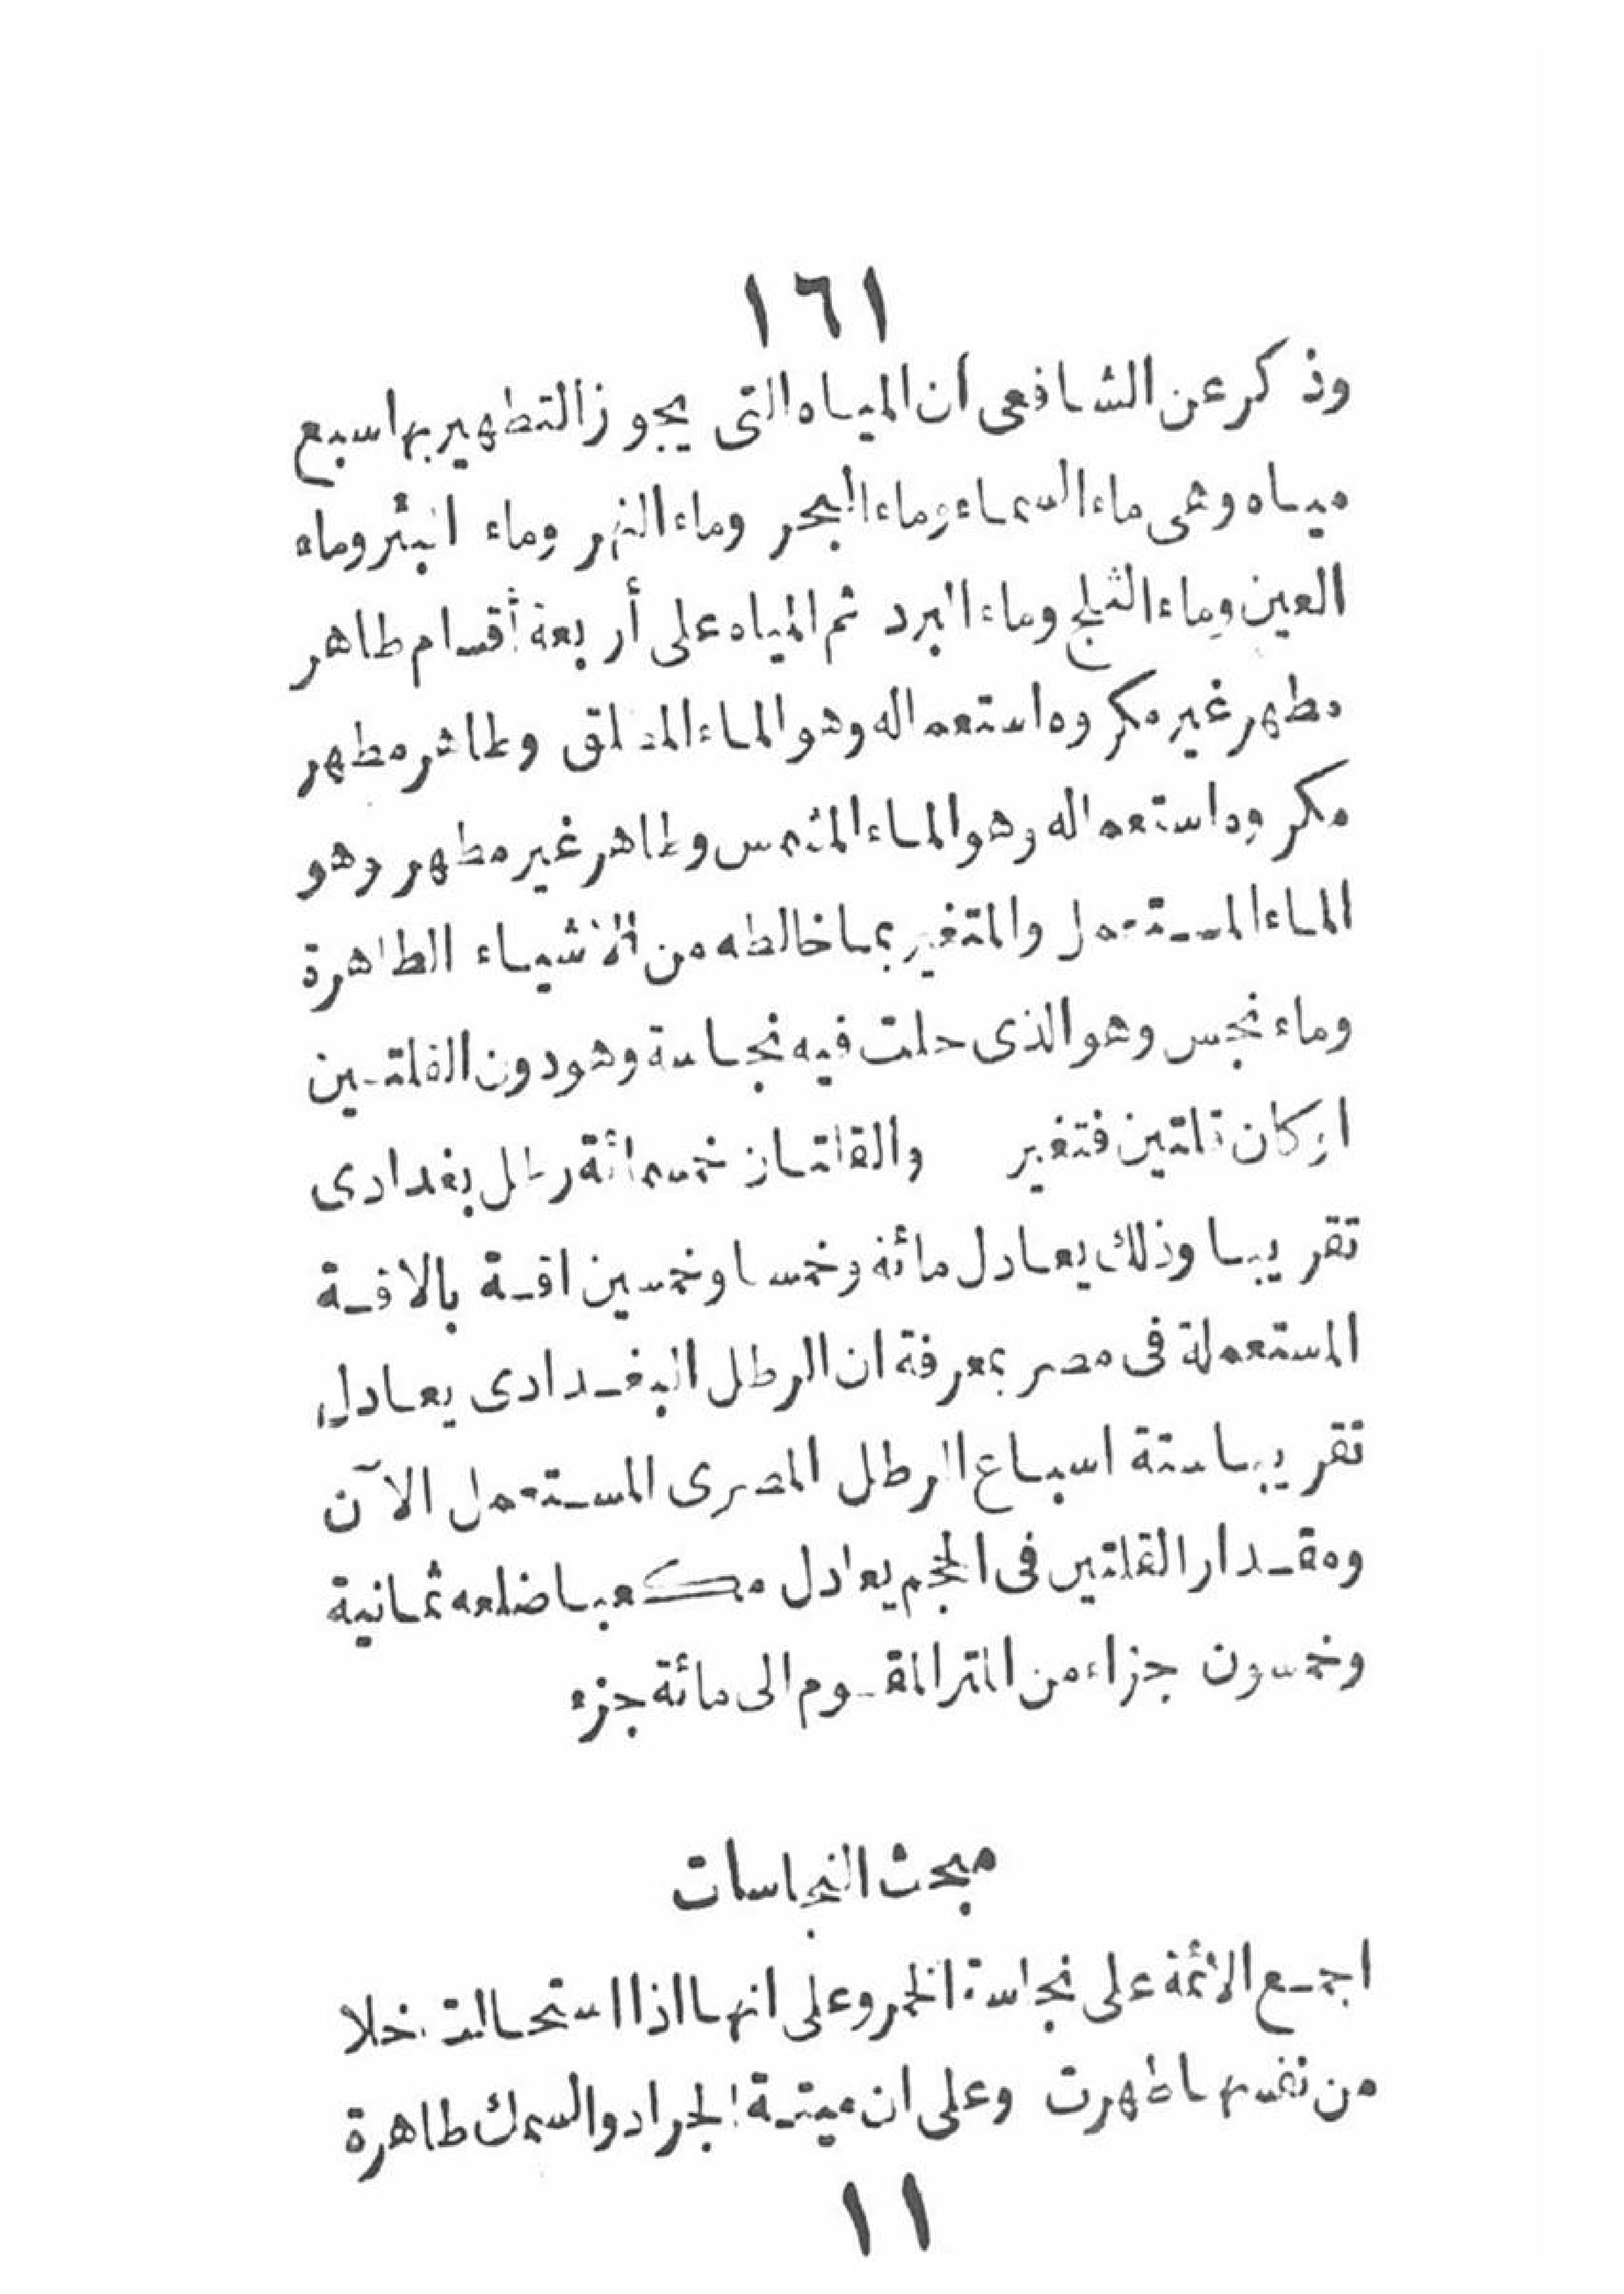 ١٦١
وذكر عن الشافعى أن المياه التى يجوز التطهير بها سبع
مياه وهى ماء السماء وماء البحر وماء النهر وماء البئر وماء
العين وماء الثلج وماء البرد ثم المياه على أربعة أقسام طاهر
مطهر غير مكروه استعماله وهو الماء المطلق وطاهر مطهر
مكروه استعماله وهو الماء المشمس وطاهر غير مطهر وهو
الماء المستعمل والمتغير بما خالطه من الأشياء الطاهرة
وماء نجس وهو الذى حلت فيه نجاسة وهو دون القلتين
او كان قلتين فتغير والقلتان خمسمائة رطل بغدادى
تقريبا وذلك يعادل مائة وخمسا وخمسين اقة بالاقة
المستعملة فى مصر بمعرفة ان الرطل البغدادى يعادل
تقريبا ستة اسباع الرطل المصرى المستعمل الآن
ومقدار القلتين فى الحجم يعادل مكعبا ضلعه ثمانية
وخمسون جزاء من المتر المقسوم الى مائة جزء
مبحث النجاسات
اجمع الأئمة على نجاسة الخمر وعلى انها اذا استحالت خلا
من نفسها طهرت وعلى ان ميتة الجراد والسمك طاهرة
١١